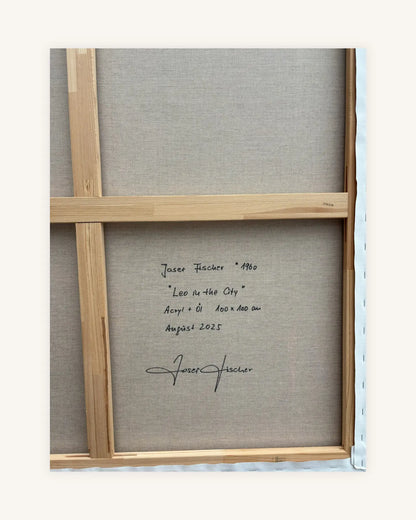 Joser Fischer *1960
"Leo in the City"
Acryl + Öl 100 x 100 cm
August 2025
Joser Fischer